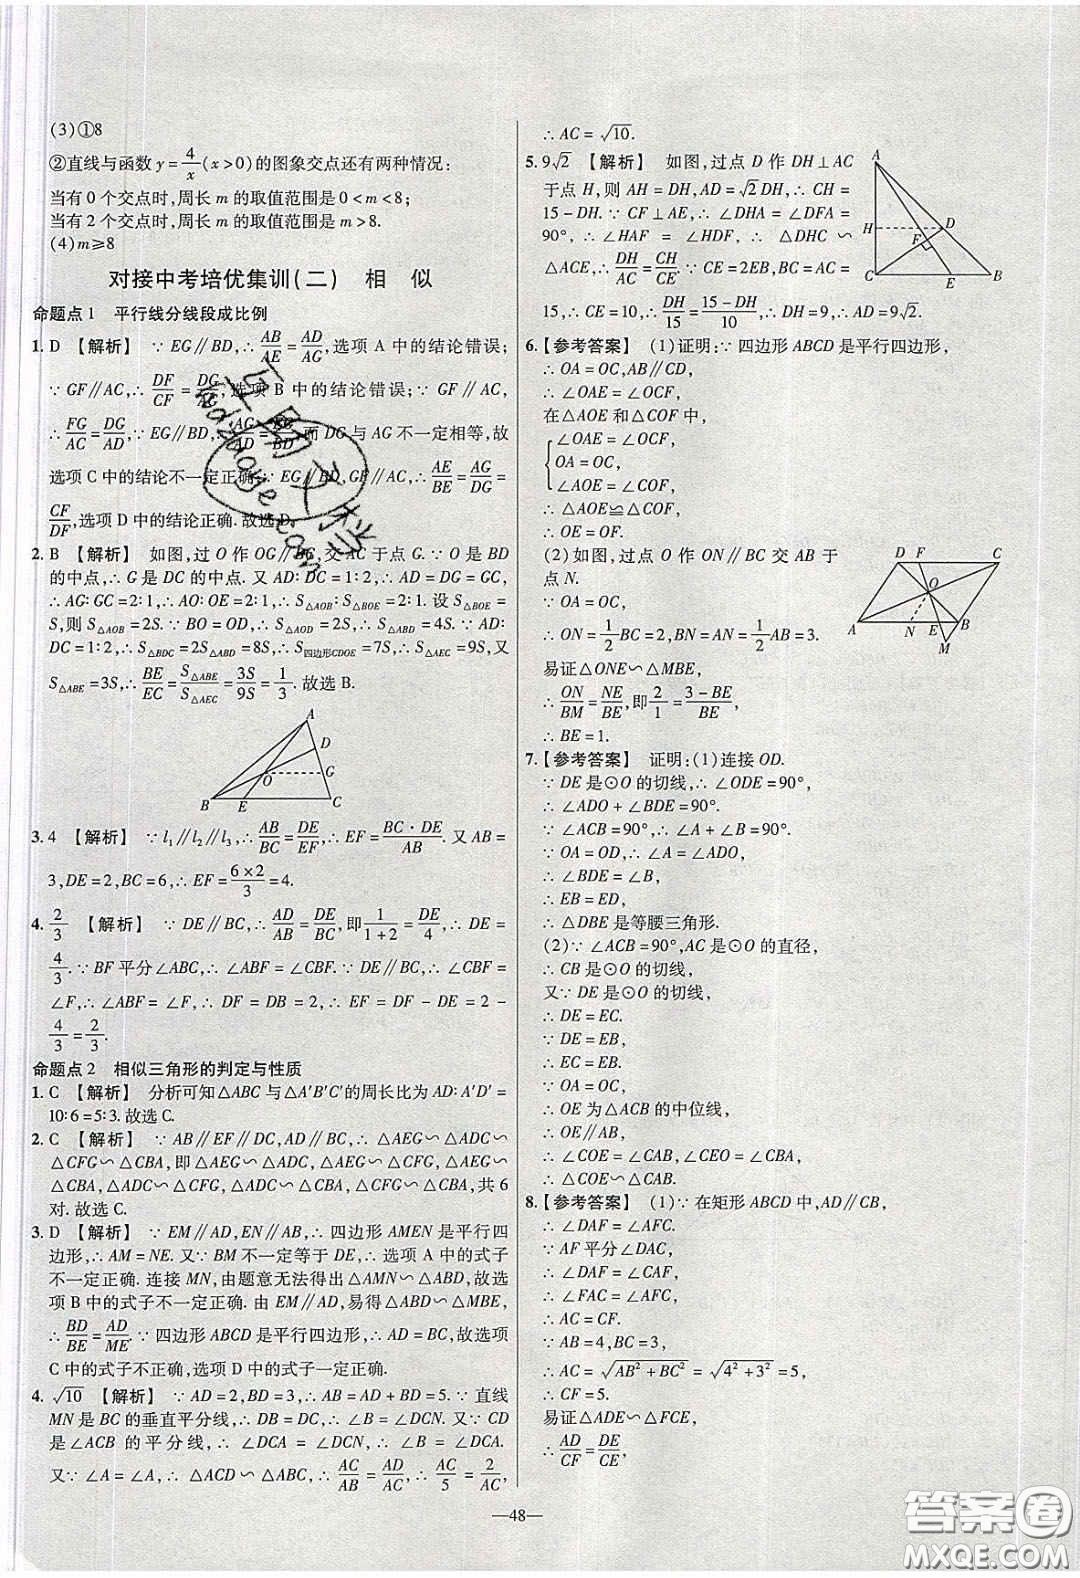 (3)①8
②直线与函数 y=4/x(x>0)的图象交点还有两种情况:
当有 0 个交点时,周长 m 的取值范围是 0<m<8;
当有 2 个交点时,周长 m 的取值范围是 m>8.
(4)m≥8
对接中考培优集训(二) 相 似
命题点 1 平行线分线段成比例
1. D 【解析】 ∵EG∥BD,∴AB/AE=AD/AG,选项 A 中的结论错误;
∵GF∥AC,∴DF/CF=DG/AG,选项 B 中的结论错误;∵GF∥AC,
∴FG/AC=DG/AD,∵EG∥BD,∴AG/AD=EG/BD,而 DG 与 AG 不一定相等,故
选项 C 中的结论不一定正确;∵EG∥BD,GF∥AC,∴AE/BE=AG/DG=
CF/DF,选项 D 中的结论正确.故选 D.
2. B 【解析】 如图,过 O 作 OG∥BC,交 AC 于点 G.∵O 是 BD
的中点,∴G 是 DC 的中点.又 AD:DC=1:2,∴AD=DG=GC,
∴AG:GC=2:1,∴AO:OE=2:1,∴S△AOB:S△BOE=2:1.设 S△BOE=
S,则 S△AOB=2S.∵BO=OD,∴S△AOD=2S,∴S△ABD=4S.∵AD:
DC=1:2,∴S△BDC=2S△ABD=8S,∴S四边形CDOE=7S,∴S△AEC=9S,又
S△ABE=3S,∴BE/EC=S△ABE/S△AEC=3S/9S=1/3.故选 B.
A
D
O
G
B
E
C
3. 4 【解析】 ∵l₁∥l₂∥l₃,∴AB/BC=DE/EF,∴EF=BC·DE/AB.又 AB=
3,DE=2,BC=6,∴EF=6×2/3=4.
4. 2/3 【解析】 ∵DE∥BC,∴AD/AB=DE/BC,即1/1+2=DE/4,∴DE=
4/3.∵BF 平分∠ABC,∴∠ABF=∠CBF.∵DE∥BC,∴∠CBF=
∠F,∴∠ABF=∠F,∴DF=DB=2,∴EF=DF-DE=2-
4/3=2/3.
命题点 2 相似三角形的判定与性质
1. C 【解析】 分析可知△ABC 与△A′B′C′的周长比为 AD:A′D′=
10:6=5:3.故选 C.
2. C 【解析】 ∵AB∥EF∥DC,AD∥BC,∴△AEG∽△ADC∽
△CFG∽△CBA,即△AEG∽△ADC,△AEG∽△CFG,△AEG∽
△CBA,△ADC∽△CFG,△ADC∽△CBA,△CFG∽△CBA,共 6
对.故选 C.
3. D 【解析】 ∵EM∥AD,EN∥AB,∴四边形 AMEN 是平行四
边形,∴AM=NE.又∵BM 不一定等于 DE,∴选项 A 中的式子
不一定正确.连接 MN,由题意无法得出△AMN∽△ABD,故选
项 B 中的式子不一定正确.由 EM∥AD,易得△ABD∽△MBE,
∴BD/BE=AD/ME.∵四边形 ABCD 是平行四边形,∴AD=BC,故选项
C 中的式子不正确,选项 D 中的式子一定正确.
4. √10 【解析】 ∵AD=2,BD=3,∴AB=AD+BD=5.∵直线
MN 是 BC 的垂直平分线,∴DB=DC,∴∠B=∠DCN.又∵CD
是∠ACB 的平分线,∴∠DCA=∠DCN,∴∠DCA=∠B.
又∵∠A=∠A,∴△ACD∽△ABC,∴AC/AB=AD/AC,∴AC/5=2/AC,
∴AC=√10.
5. 9√2 【解析】 如图,过点 D 作 DH⊥AC
于点 H,则 AH=DH,AD=√2DH,∴CH=
15-DH.∵CF⊥AE,∴∠DHA=∠DFA=
90°,∴∠HAF=∠HDF,∴△DHC∽
△ACE,∴DH/AC=CH/CE.∵CE=2EB,BC=AC=
15,∴CE=10,∴DH/15=15-DH/10,∴DH=9,∴AD=9√2.
A
H
D
F
C
E
B
6.【参考答案】 (1)证明:∵四边形 ABCD 是平行四边形,
∴OA=OC,AB∥CD,
∴∠OAE=∠OCF,
在△AOE 和△COF 中,
∠OAE=∠OCF,
OA=OC,
∠AOE=∠COF,
∴△AOE≌△COF,
∴OE=OF.
(2)如图,过点 O 作 ON∥BC 交 AB 于
点 N.
∵OA=OC,
∴ON=1/2BC=2,BN=AN=1/2AB=3.
易证△ONE∽△MBE,
∴ON/BM=NE/BE,即2/1=3-BE/BE,
∴BE=1.
D
F
C
O
A
N
E
B
M
7.【参考答案】 证明:(1)连接 OD.
∵DE 是⊙O 的切线,∴∠ODE=90°,
∴∠ADO+∠BDE=90°.
∵∠ACB=90°,∴∠A+∠B=90°.
∵OA=OD,∴∠A=∠ADO,
∴∠BDE=∠B,
∴EB=ED,
∴△DBE 是等腰三角形.
(2)∵∠ACB=90°,AC 是⊙O 的直径,
∴CB 是⊙O 的切线,
又∵DE 是⊙O 的切线,
∴DE=EC.
∵DE=EB,
∴EC=EB.
∵OA=OC,
∴OE 为△ACB 的中位线,
∴OE∥AB,
∴∠COE=∠CAB,∠CEO=∠CBA,
∴△COE∽△CAB.
8.【参考答案】 (1)∵在矩形 ABCD 中,AD∥CB,
∴∠DAF=∠AFC.
∵AF 平分∠DAC,
∴∠DAF=∠CAF,
∴∠FAC=∠AFC,
∴AC=CF.
∵AB=4,BC=3,
∴AC=√AB²+BC²=√4²+3²=5,
∴CF=5.
易证△ADE∽△FCE,
∴AD/CF=DE/CE,
—48—
答案圈
MXQE.COM